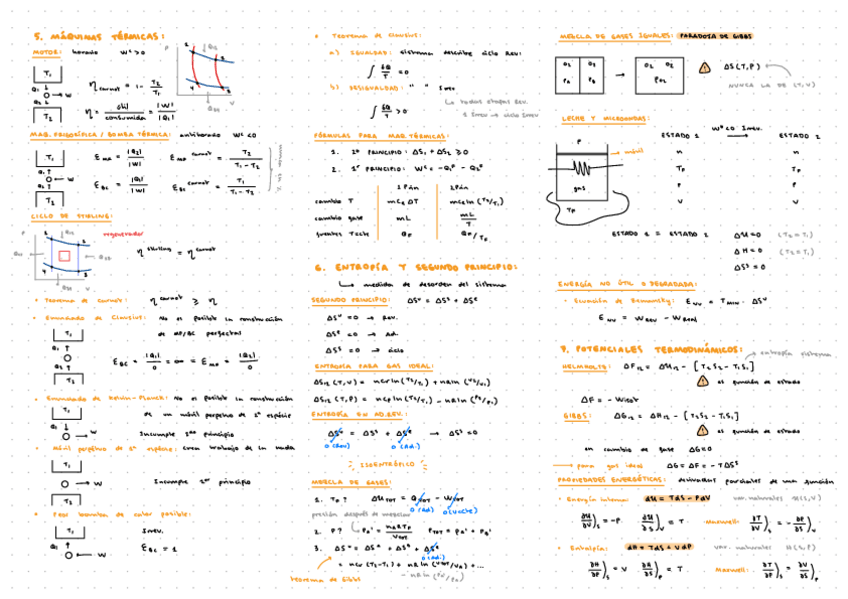 5. MÁQUINAS TÉRMICAS:
MOTOR: horario W^c > 0
T₁
Q₁ → W
T₂
η carnot = 1 - T₂/T₁
η = útil/consumida = |W|/|Q₁|
MAQ. FRIGORÍFICA / BOMBA TÉRMICA: antihorario W^c < 0
T₁
E_MF = |Q₂|/|W| E_MF carnot = T₂/(T₁-T₂)
E_BC = |Q₁|/|W| E_BC carnot = T₁/(T₁-T₂)
T₂
CICLO DE STIRLING:
regenerador
η stirling = η carnot
• Teorema de Carnot: η carnot ≥ η
• Enunciado de Clausius: No es posible la construcción
de MF/BC perfectas
T₁
E_BC = |Q₁|/0 = ∞ = E_MF = |Q₂|/0
T₂
• Enunciado de Kelvin-Planck: No es posible la construcción
de un móvil perpetuo de 2ª especie
T₁
Q₁ → W
Incumple 2º principio
• Móvil perpetuo de 1ª especie: crea trabajo de la nada
T₁
→ W
Incumple 1er principio
T₂
• Peor bomba de calor posible:
T₁
Irrev.
Q₁ ← W
E_BC = 1
• Teorema de Clausius:
a) IGUALDAD: sistema describe ciclo Rev:
∫ δQ/T = 0
b) DESIGUALDAD: " " Irrev
FÓRMULAS PARA MAQ. TÉRMICAS:
1. 2º PRINCIPIO: ΔS₁ + ΔS₂ ≥ 0
1 Prin 2 Prin
cambio T mcₑΔT mcₑ ln(T₂/T₁)
cambio fase mL mL/T
fuentes T=cte Q_F Q_F/T_F
6. ENTROPÍA Y SEGUNDO PRINCIPIO:
↳ medida de desorden del sistema
SEGUNDO PRINCIPIO: ΔSᵘ = ΔSˢ + ΔSᵉ
ΔSᵘ = 0 → Rev.
ΔSᵉ = 0 → Ad.
ΔSˢ = 0 → ciclo
ENTROPÍA PARA GAS IDEAL:
ΔS₁₂ (T,V) = ncv ln(T₂/T₁) + nR ln(V₂/V₁)
ΔS₁₂ (T,P) = ncp ln(T₂/T₁) - nR ln(P₂/P₁)
ENTROPÍA EN AD. REV.:
ΔSᵘ = ΔSˢ + ΔSᵉ → ΔSˢ = 0
0 (Rev) 0 (Ad.)
ISENTRÓPICO
MEZCLA DE GASES:
1. T_F? ΔU_TOT = Q_TOT - W_TOT
0 (Ad) 0 (V=cte)
presión después de mezclar
2. P? P_A' = n_A R T_F / V_TOT P_TOT = P_A' + P_B'
3. ΔSᵘ = ΔSᴬ + ΔSᴮ + ΔSᵉ
0 (Ad.)
= ncv (T₂-T₁) + nR ln (V_TOT/V_A) + ...
teorema de Gibbs
- nR ln (P_A'/P_A)
MEZCLA DE GASES IGUALES: PARADOJA DE GIBBS
O₂ O₂ → O₂ O₂
P_A P_B P_O₂
ΔS(T,P)
NUNCA LA DE (T,V)
LECHE Y MICROONDAS:
ESTADO 1 W^c<0 Irrev. ESTADO 2
P
móvil
gas
T_F
n n
T_F T_F
P P
V V
ESTADO 1 = ESTADO 2 ΔU = 0 (T₂=T₁)
ΔH = 0 (T₂=T₁)
ΔSˢ = 0
ENERGÍA NO ÚTIL O DEGRADADA:
E_NU = W_REV - W_Real
7. POTENCIALES TERMODINÁMICOS:
entropía sistema
HELMHOLTZ: ΔF₁₂ = ΔU₁₂ - [T₂S₂ - T₁S₁]
es función de estado
GIBBS: ΔG₁₂ = ΔH₁₂ - [T₂S₂ - T₁S₁]
es función de estado
en cambio de fase ΔG=0
para gas ideal ΔG = ΔF = -TΔSˢ
PROPIEDADES ENERGÉTICAS: derivadas parciales de una función
• Energía interna: dU = TdS - PdV var. naturales U(S,V)
∂U/∂V)_S = -P ∂U/∂S)_V = T Maxwell: ∂T/∂V)_S = -∂P/∂S)_V
• Entalpía: dH = TdS + VdP var. naturales H(S,P)
∂H/∂P)_S = V ∂H/∂S)_P = T Maxwell: ∂T/∂P)_S = ∂V/∂S)_P